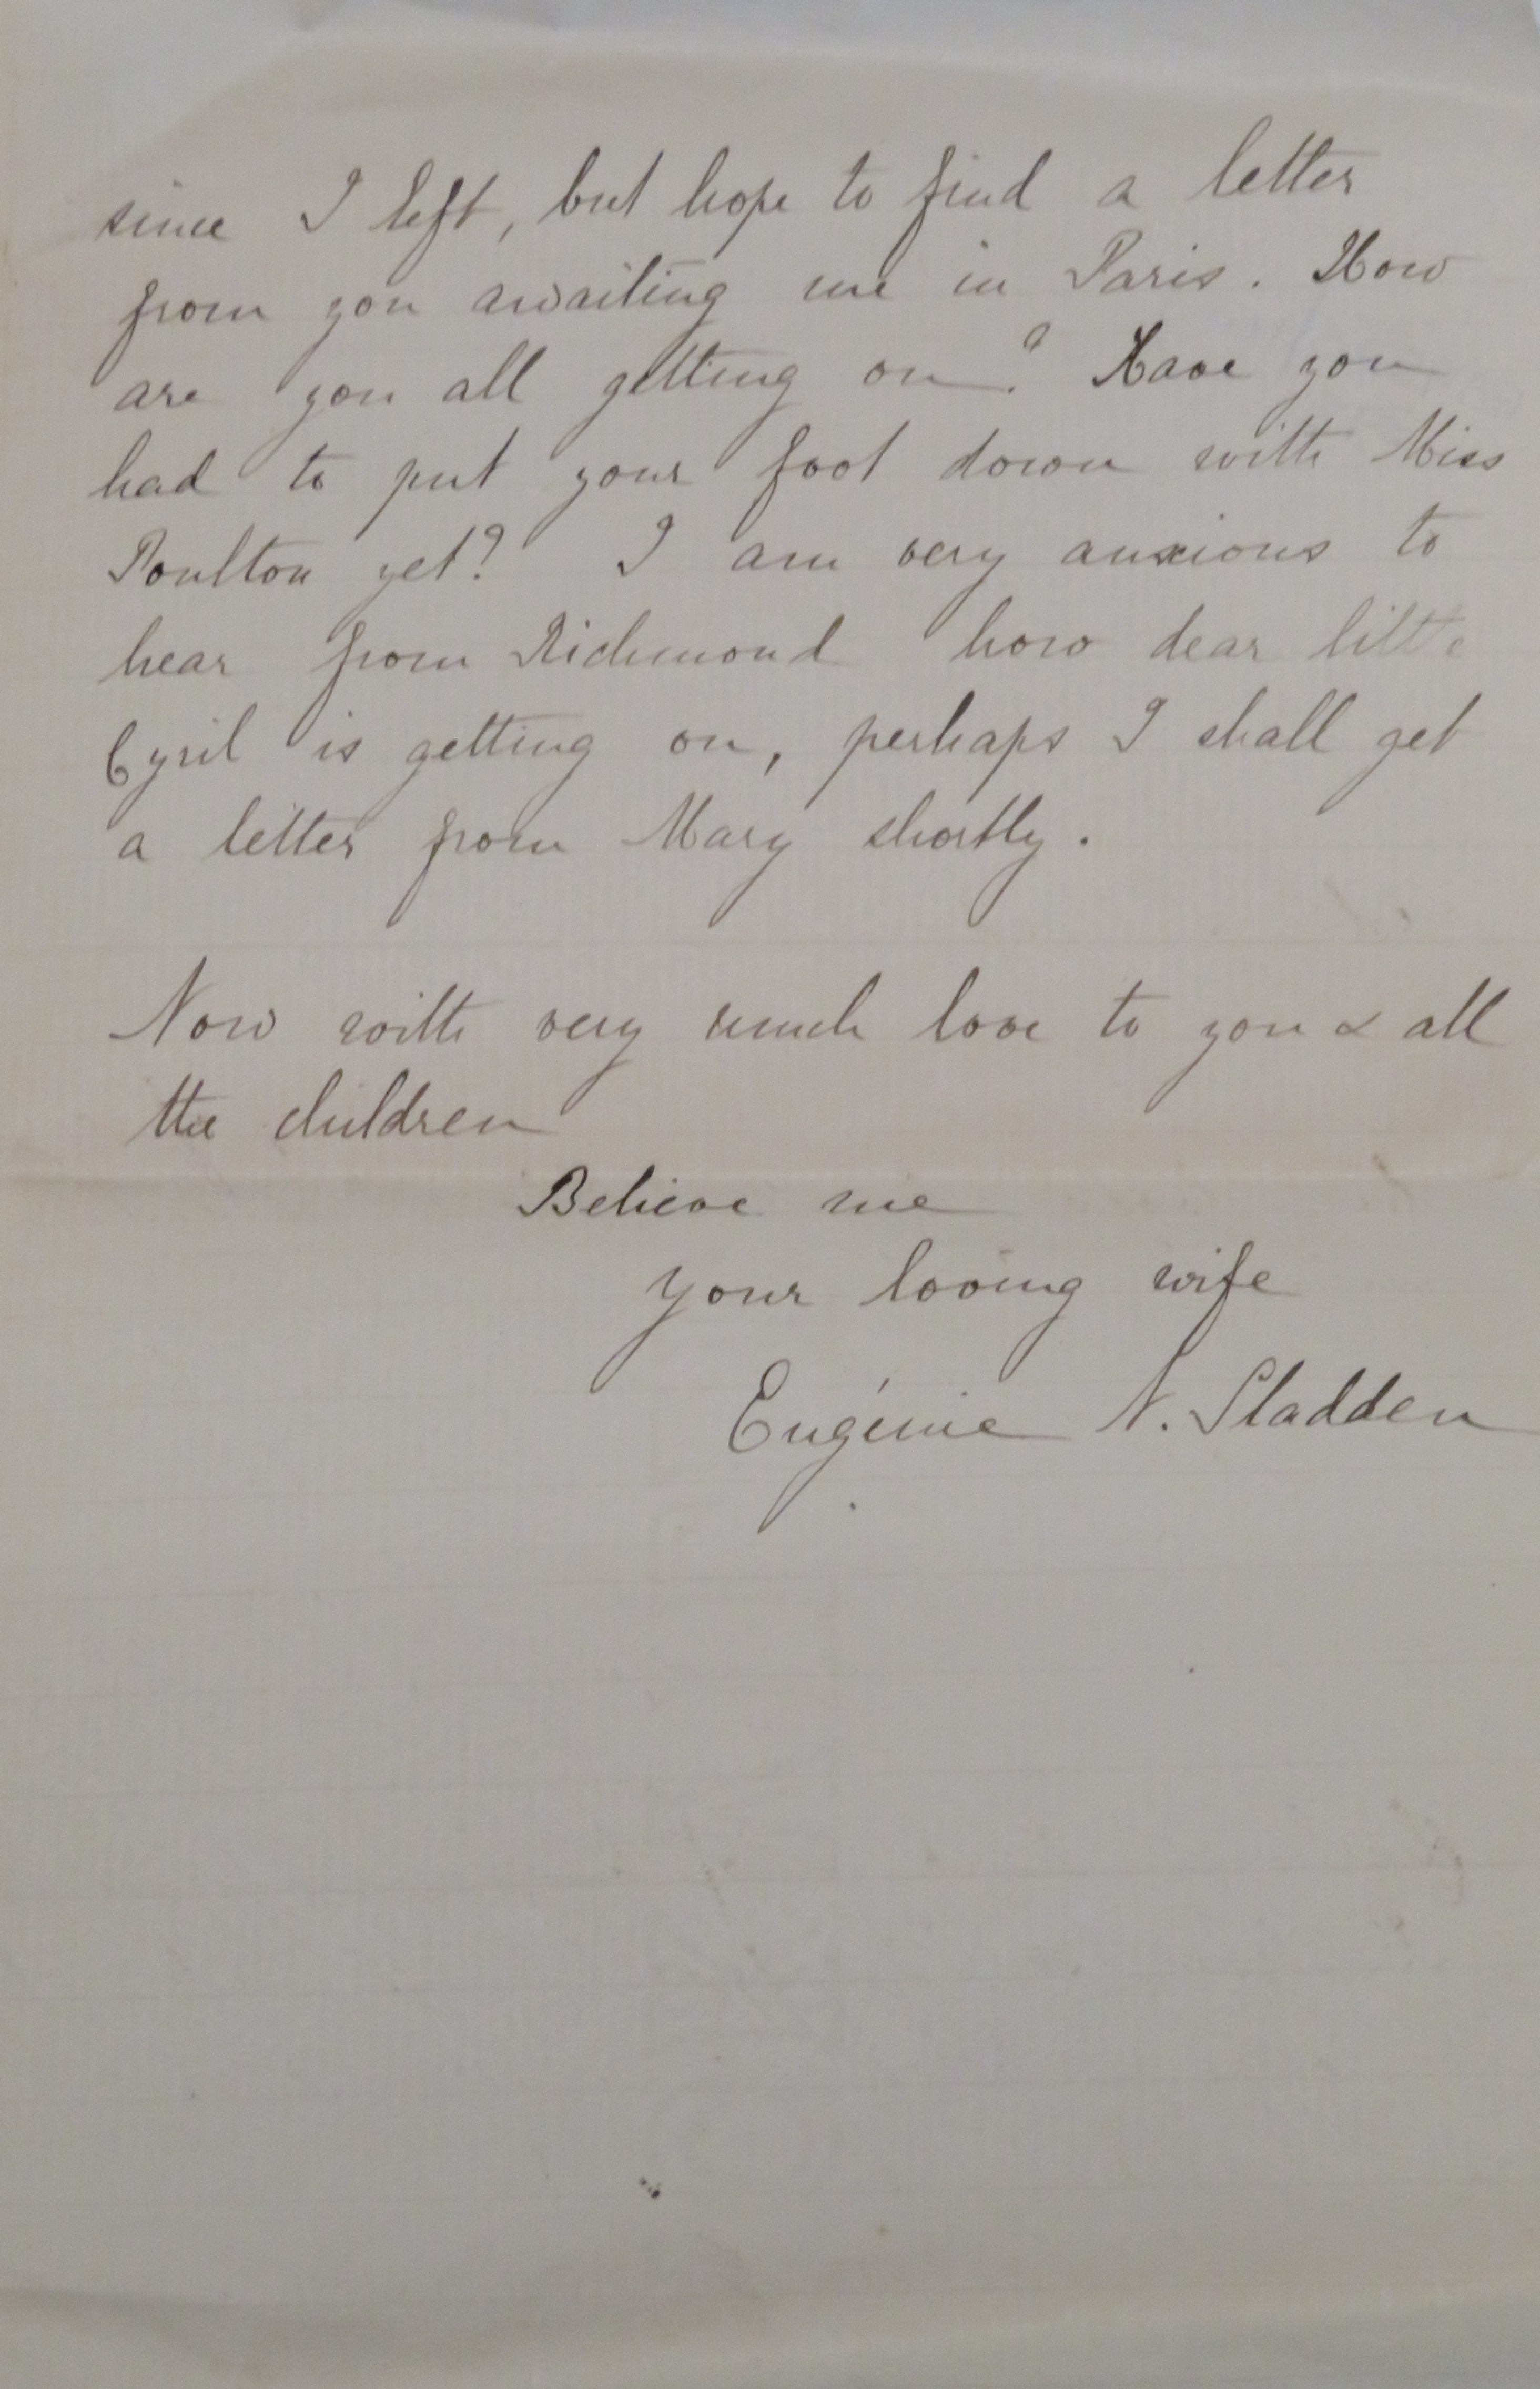 since I left, but hope to find a letter
from you awaiting me in Paris. How
are you all getting on? Have you
had to put your foot down with Miss
Poulton yet? I am very anxious to
hear from Richmond how dear little
Cyril is getting on, perhaps I shall get
a letter from Mary shortly.
Now with very much love to you & all
the children
Believe me
your loving wife
Eugénie N. Sladden